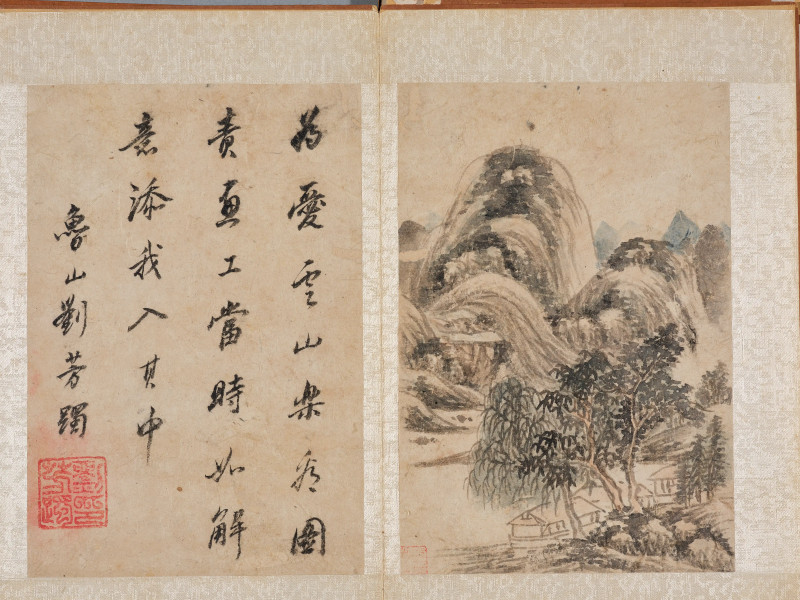 為愛雲山樂圖
責畫工當時如解
意添我入其中
魯山劉芳躅